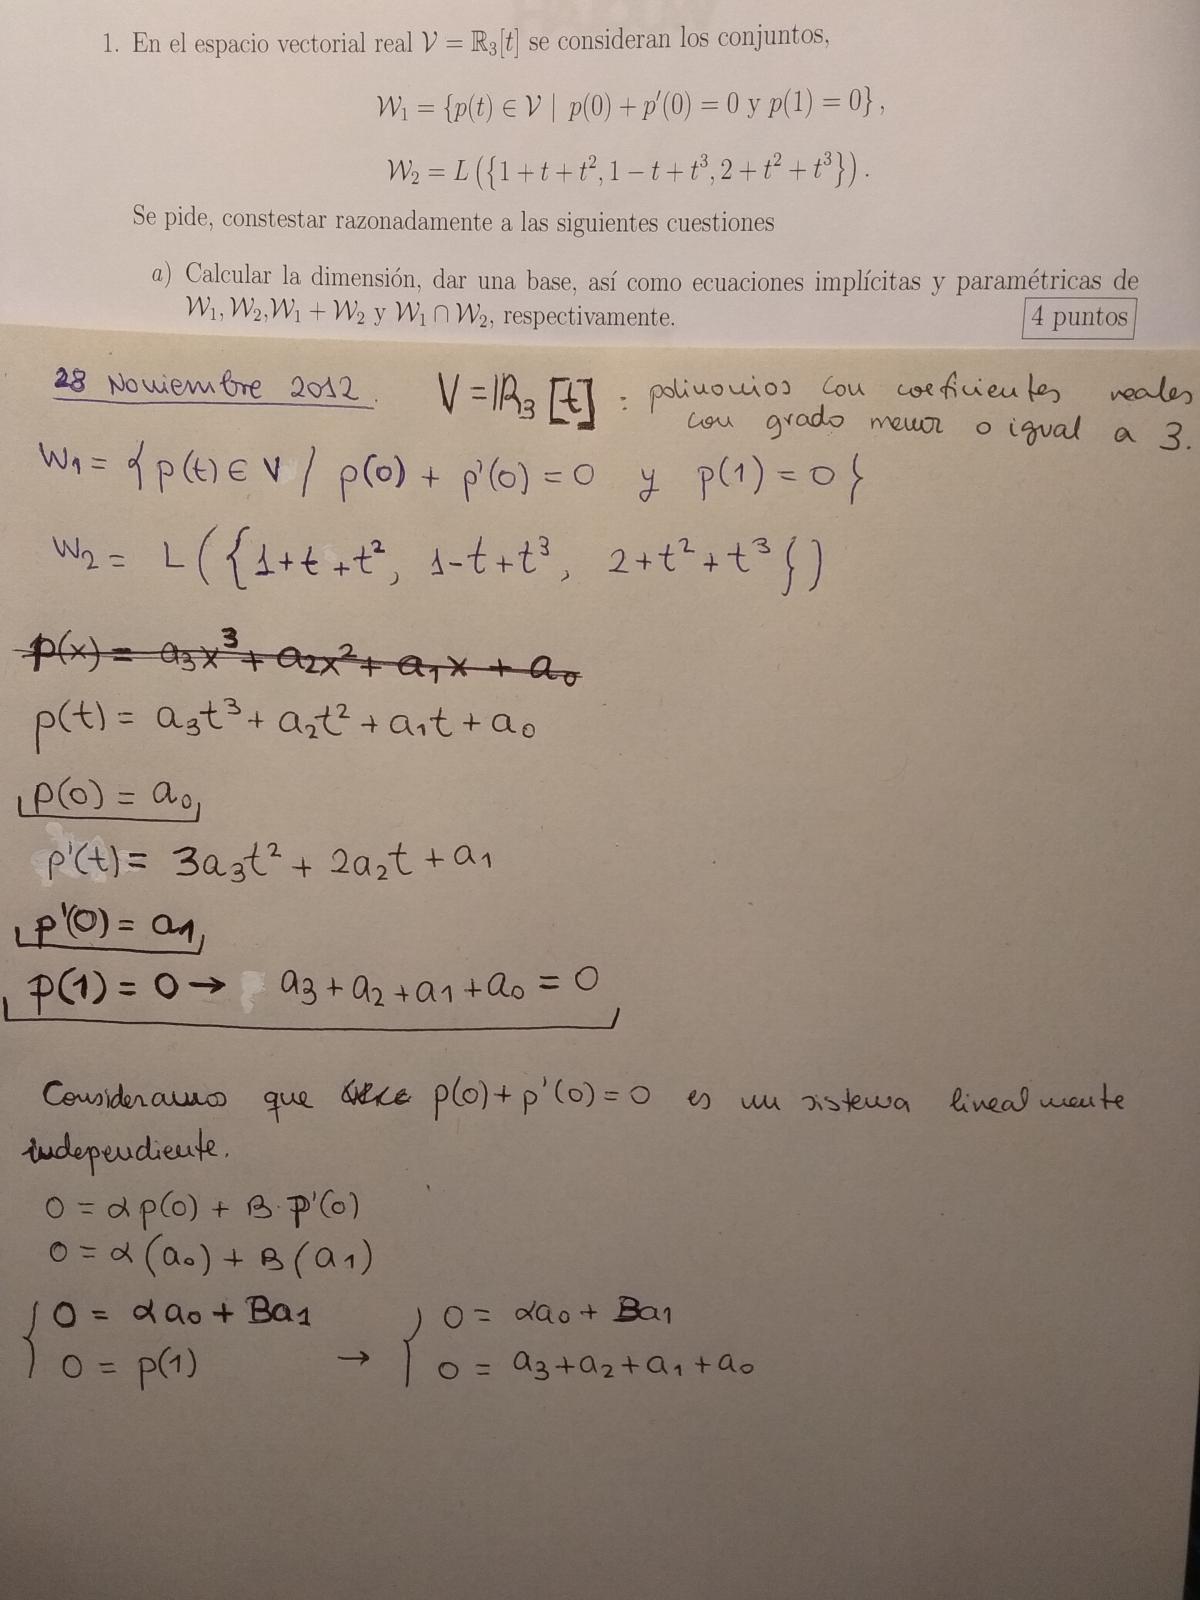 1. En el espacio vectorial real 𝒱 = ℝ₃[t] se consideran los conjuntos,
𝒲₁ = {p(t) ∈ 𝒱 | p(0) + p′(0) = 0 y p(1) = 0},
𝒲₂ = L({1 + t + t², 1 − t + t³, 2 + t² + t³}).
Se pide, constestar razonadamente a las siguientes cuestiones
a) Calcular la dimensión, dar una base, así como ecuaciones implícitas y paramétricas de
𝒲₁, 𝒲₂, 𝒲₁ + 𝒲₂ y 𝒲₁ ∩ 𝒲₂, respectivamente. 4 puntos
28 Noviembre 2012. V = ℝ₃[t] : polinomios con coeficientes reales
con grado menor o igual a 3.
W₁ = {p(t) ∈ V / p(0) + p'(0) = 0 y p(1) = 0}
W₂ = L({1+t+t², 1-t+t³, 2+t²+t³})
p(x) = a₃x³ + a₂x² + a₁x + a₀
p(t) = a₃t³ + a₂t² + a₁t + a₀
p(0) = a₀
p'(t) = 3a₃t² + 2a₂t + a₁
p'(0) = a₁
p(1) = 0 → a₃ + a₂ + a₁ + a₀ = 0
Consideramos que p(0) + p'(0) = 0 es un sistema linealmente
independiente.
0 = α p(0) + B · p'(0)
0 = α (a₀) + B (a₁)
{ 0 = αa₀ + Ba₁ { 0 = αa₀ + Ba₁
0 = p(1) → 0 = a₃ + a₂ + a₁ + a₀